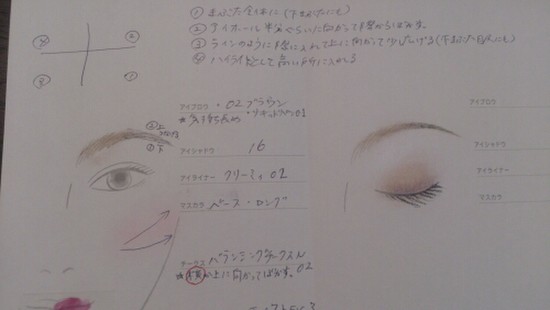 ① まぶた全体に(下まぶたにも)
② アイホール半分ぐらいに向かって下からぼかす。
③ ラインのように際に入れて上に向かって少し広げる(下まぶた目尻にも)
④ ハイライトとして高い所に入れる
④ ②
③ ①
アイブロウ ・02 ブラウン
*気持ち長め
②上
①下
アイシャドウ 16
アイライナー クリーミィ 02
マスカラ ベース・ロング
チークス バランシングチークス N
上に向かってぼかす。02
アイブロウ
アイシャドウ
アイライナー
マスカラ